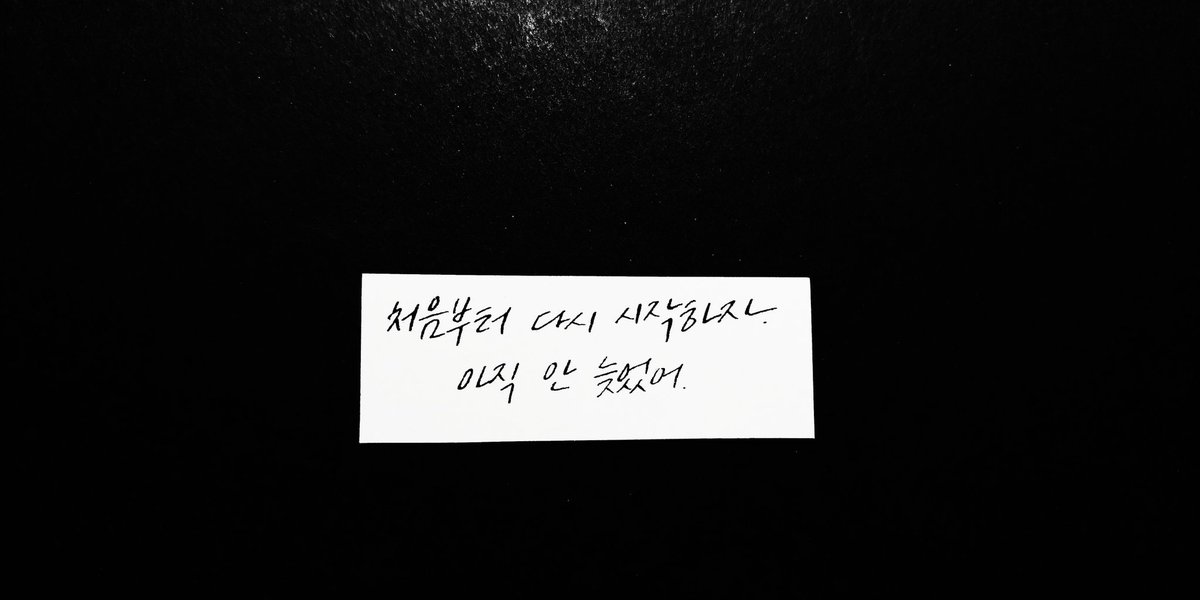 처음부터 다시 시작하자.
아직 안 늦었어.